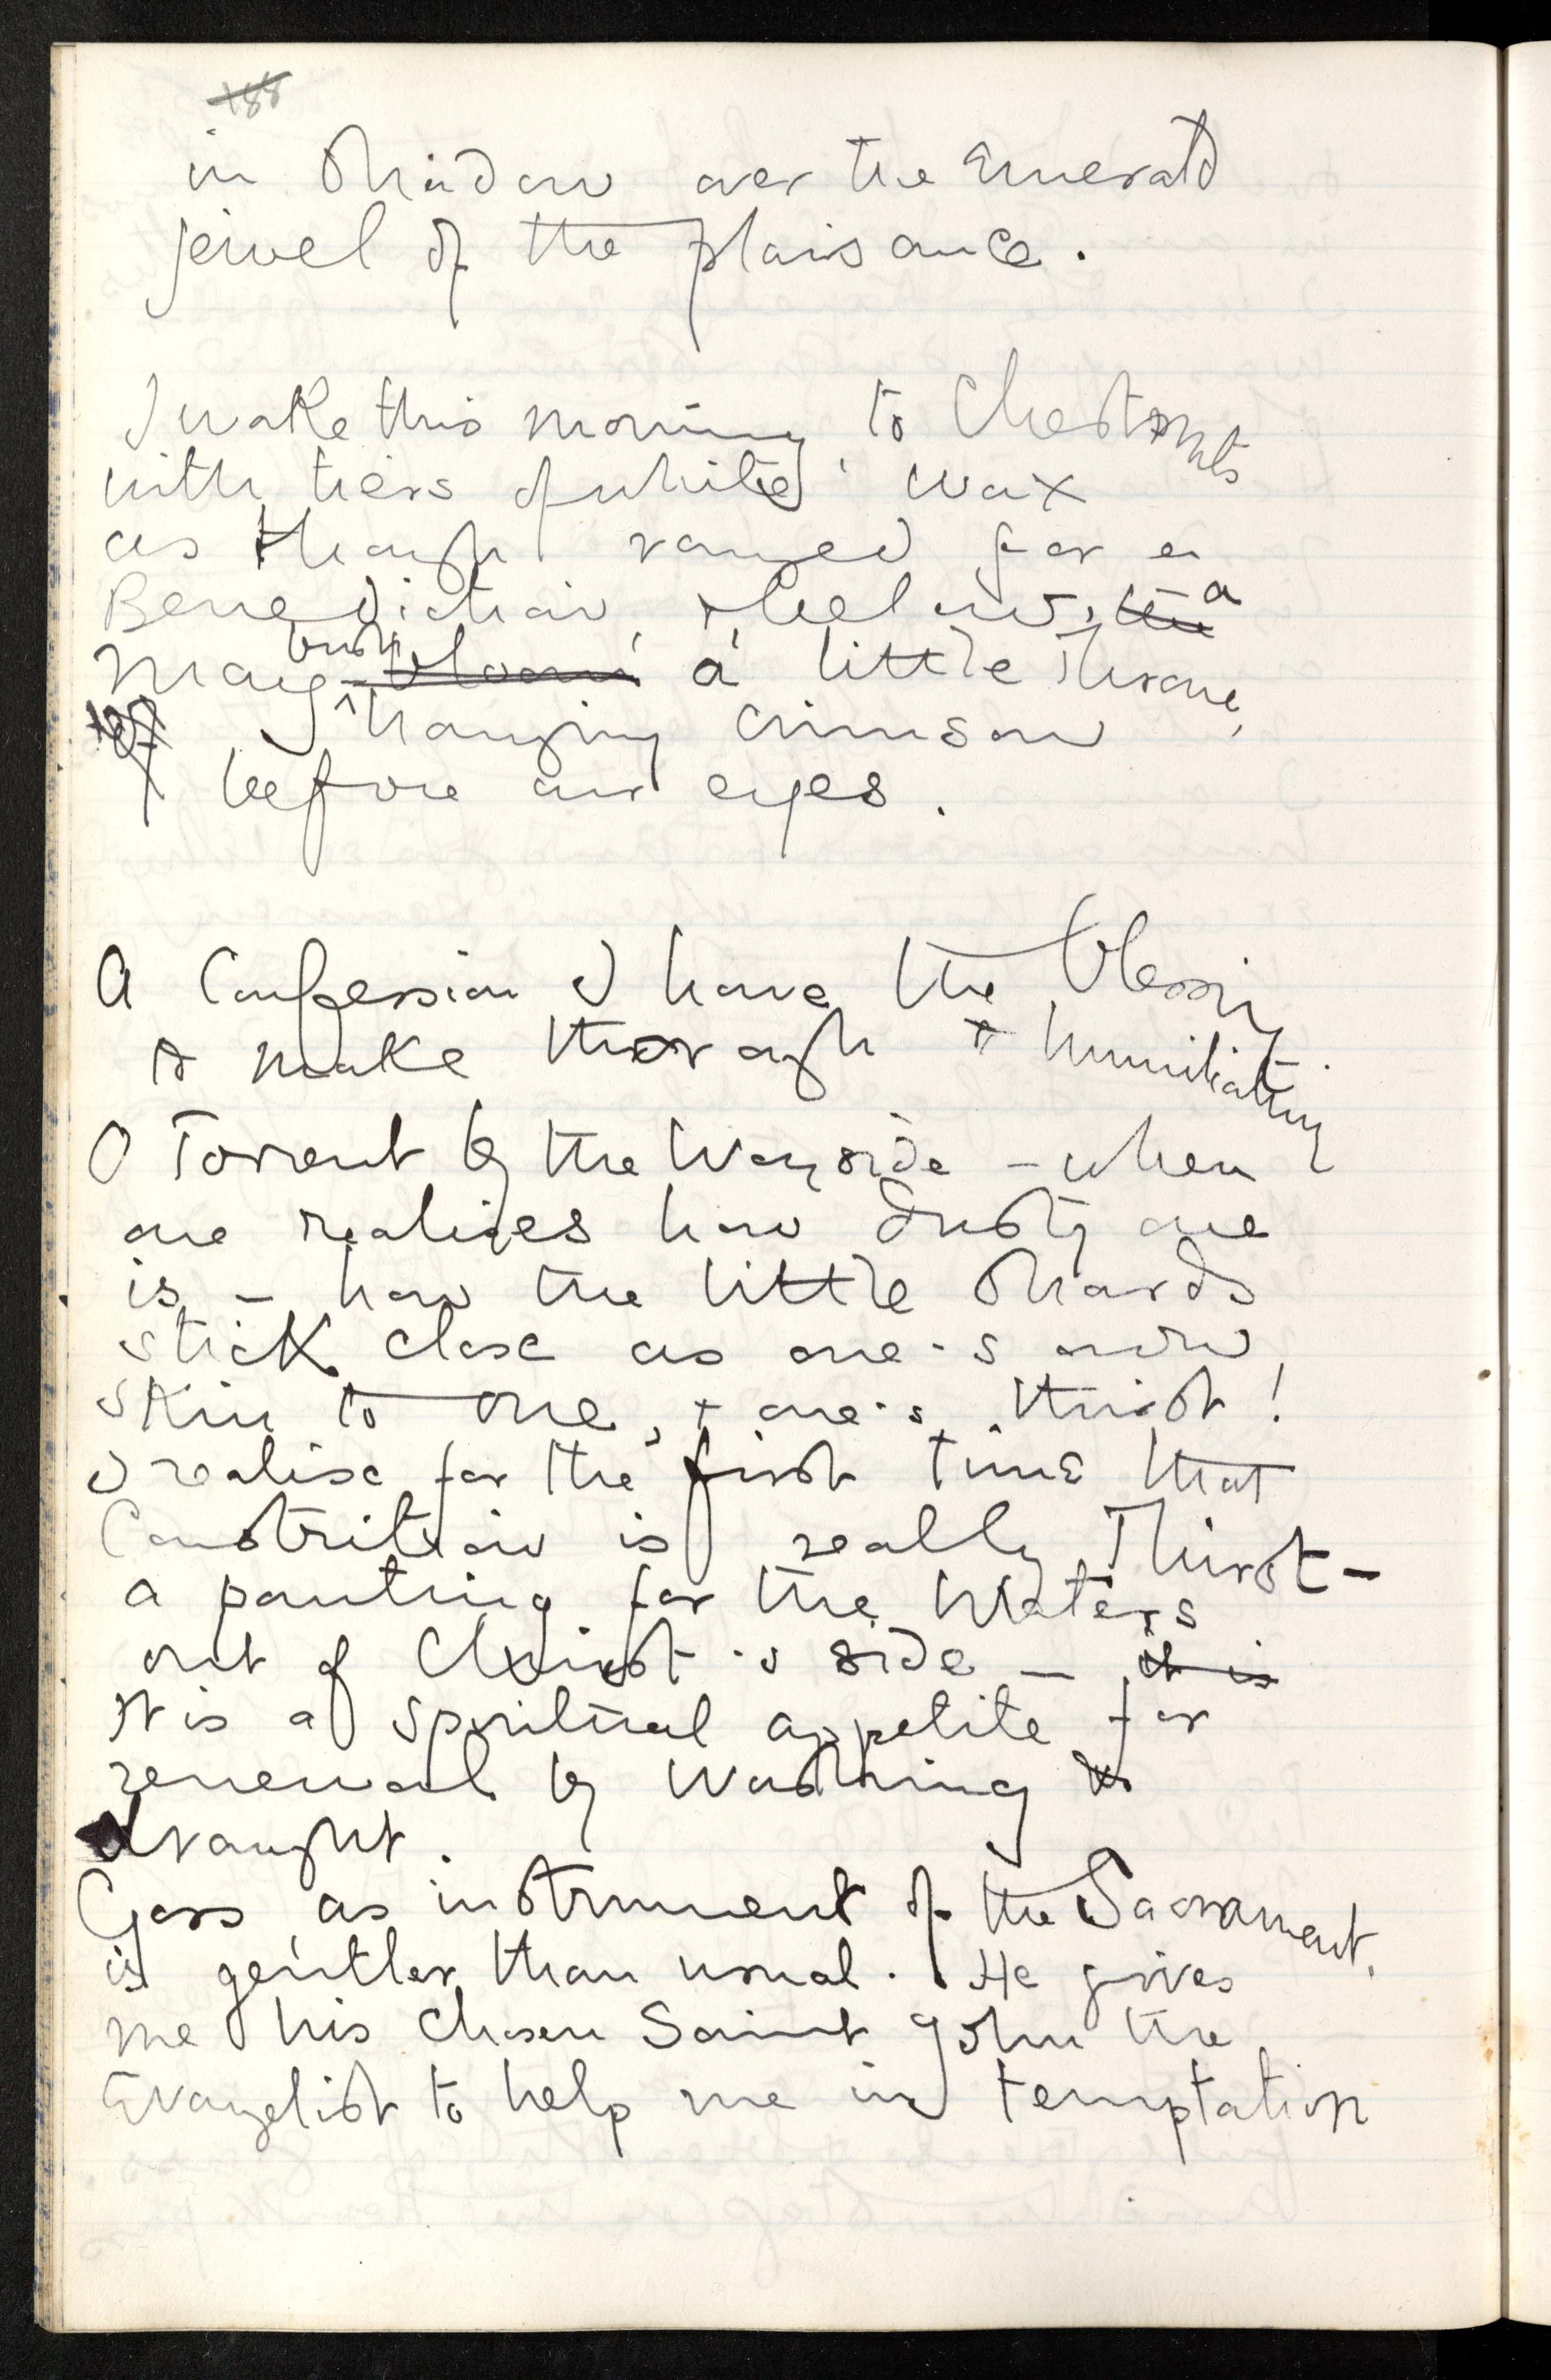 188
in shadow over the Emerald
jewel of the plaisance.
I wake this morning to Chestnuts
with tiers of white wax
as though ranged for a
Benediction, & below, the a
May-bloom bush a little Throne,
hanging crimson
before our eyes.
A Confession I have the blessing
to make thorough & humiliating
O Torrent by the Wayside – when
one realises how dusty one
is – how the little shards
stick close as one's own
skin to one, & one's thirst!
I realise for the first time that
Constrition is really Thirst –
a panting for the Waters
out of Christ's side – it is
It is a spiritual appetite for
renewal by washing &
draught.
Goss as instrument of the Sacrament,
is gentler than usual. He gives
me his chosen Saint John the
Evangelist to help me in temptation